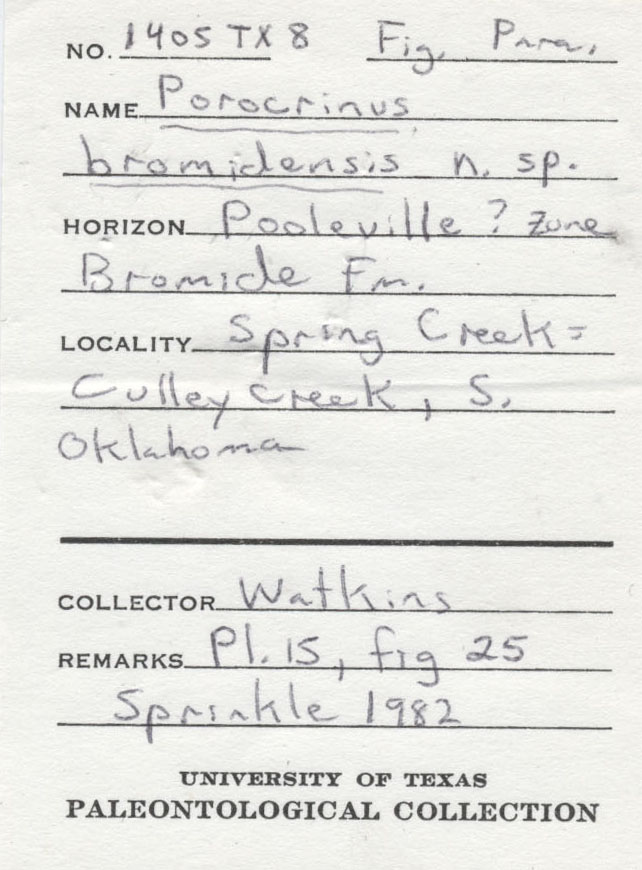 NO. 1405 TX 8 Fig. Para.
NAME Porocrinus
bromidensis n. sp.
HORIZON Pooleville ? Zone
Bromide Fm.
LOCALITY Spring Creek=
Culley Creek, S.
Oklahoma
COLLECTOR Watkins
REMARKS Pl. 15, fig 25
Sprinkle 1982
UNIVERSITY OF TEXAS
PALEONTOLOGICAL COLLECTION